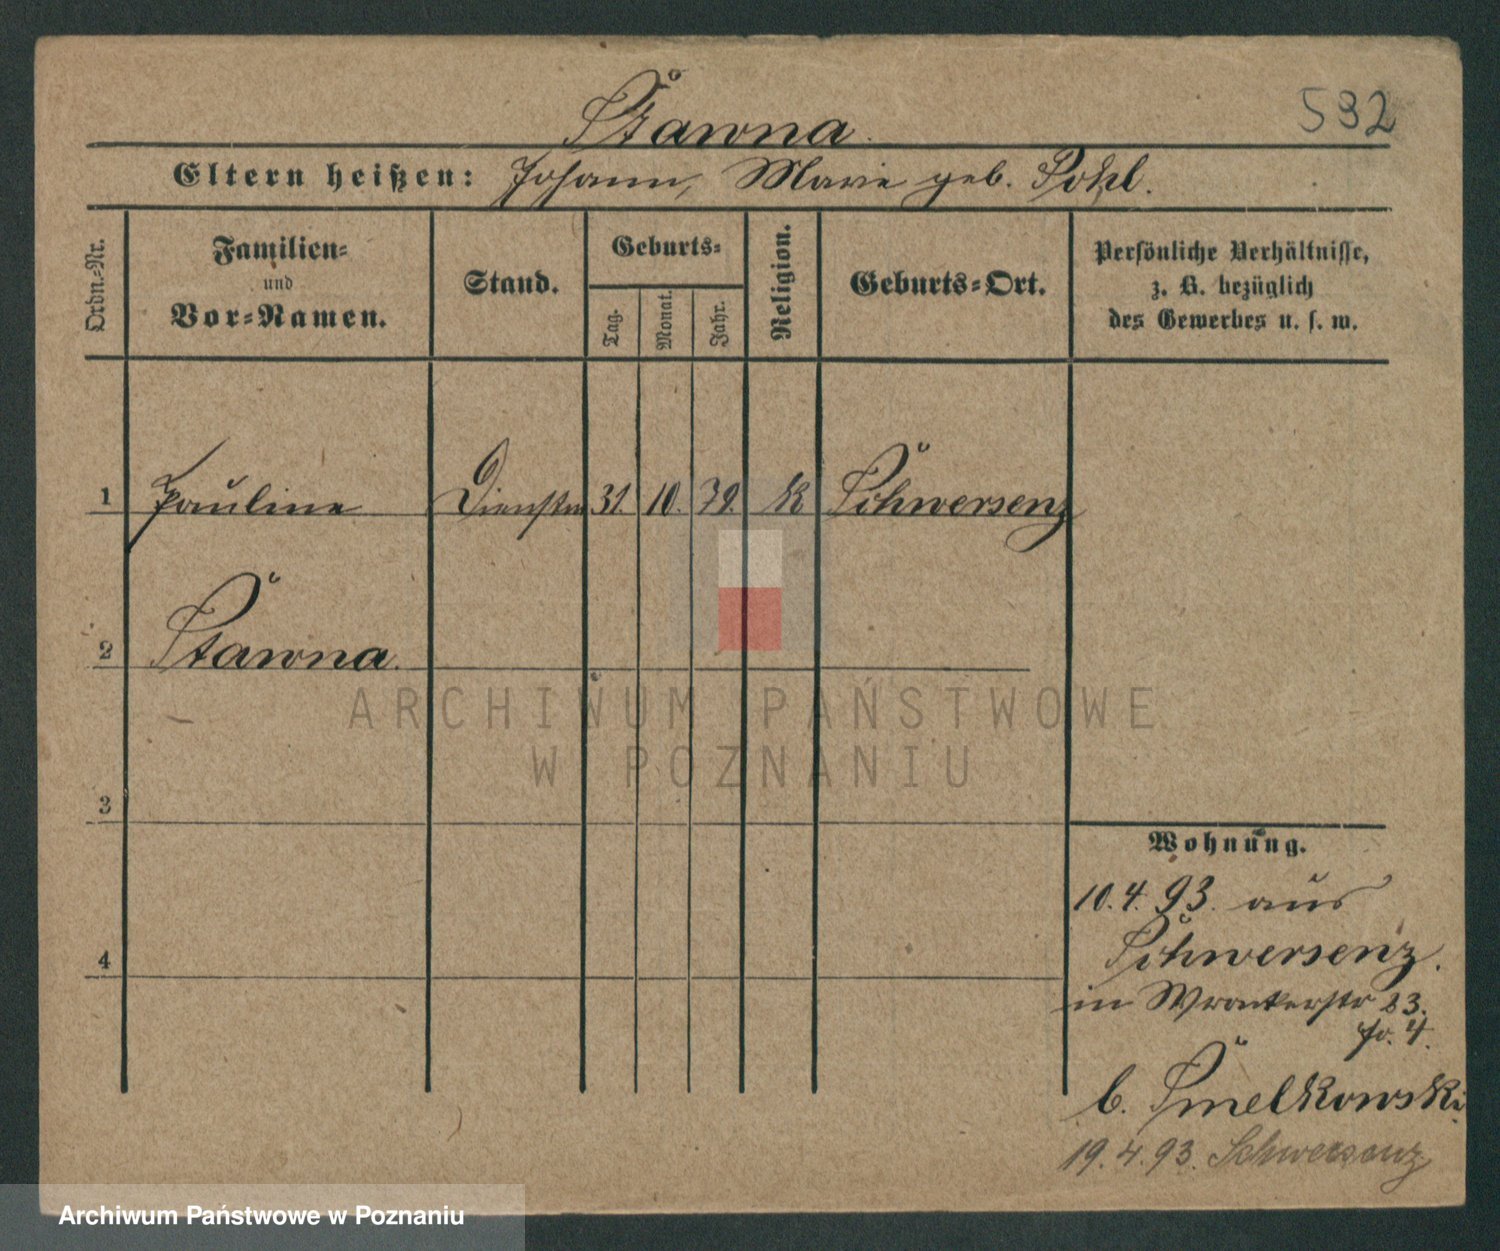 Stawna.
532
Eltern heißen: Johann, Marie geb. Pohl.
Ordn.-Nr.
Familien-
und
Vor-Namen.
Stand.
Geburts-
Tag.
Monat.
Jahr.
Religion.
Geburts-Ort.
Persönliche Verhältnisse,
z. B. bezüglich
des Gewerbes u. s. w.
1 Pauline 31. 10. 79. K Schwersenz
2 Stawna.
3
4
ARCHIWUM PAŃSTWOWE
W POZNANIU
Wohnung.
10.4.93. aus
Schwersenz.
in Wronkerstr 23.
4.
b. Smelkowski
19.4.93. Schwersenz
Archiwum Państwowe w Poznaniu